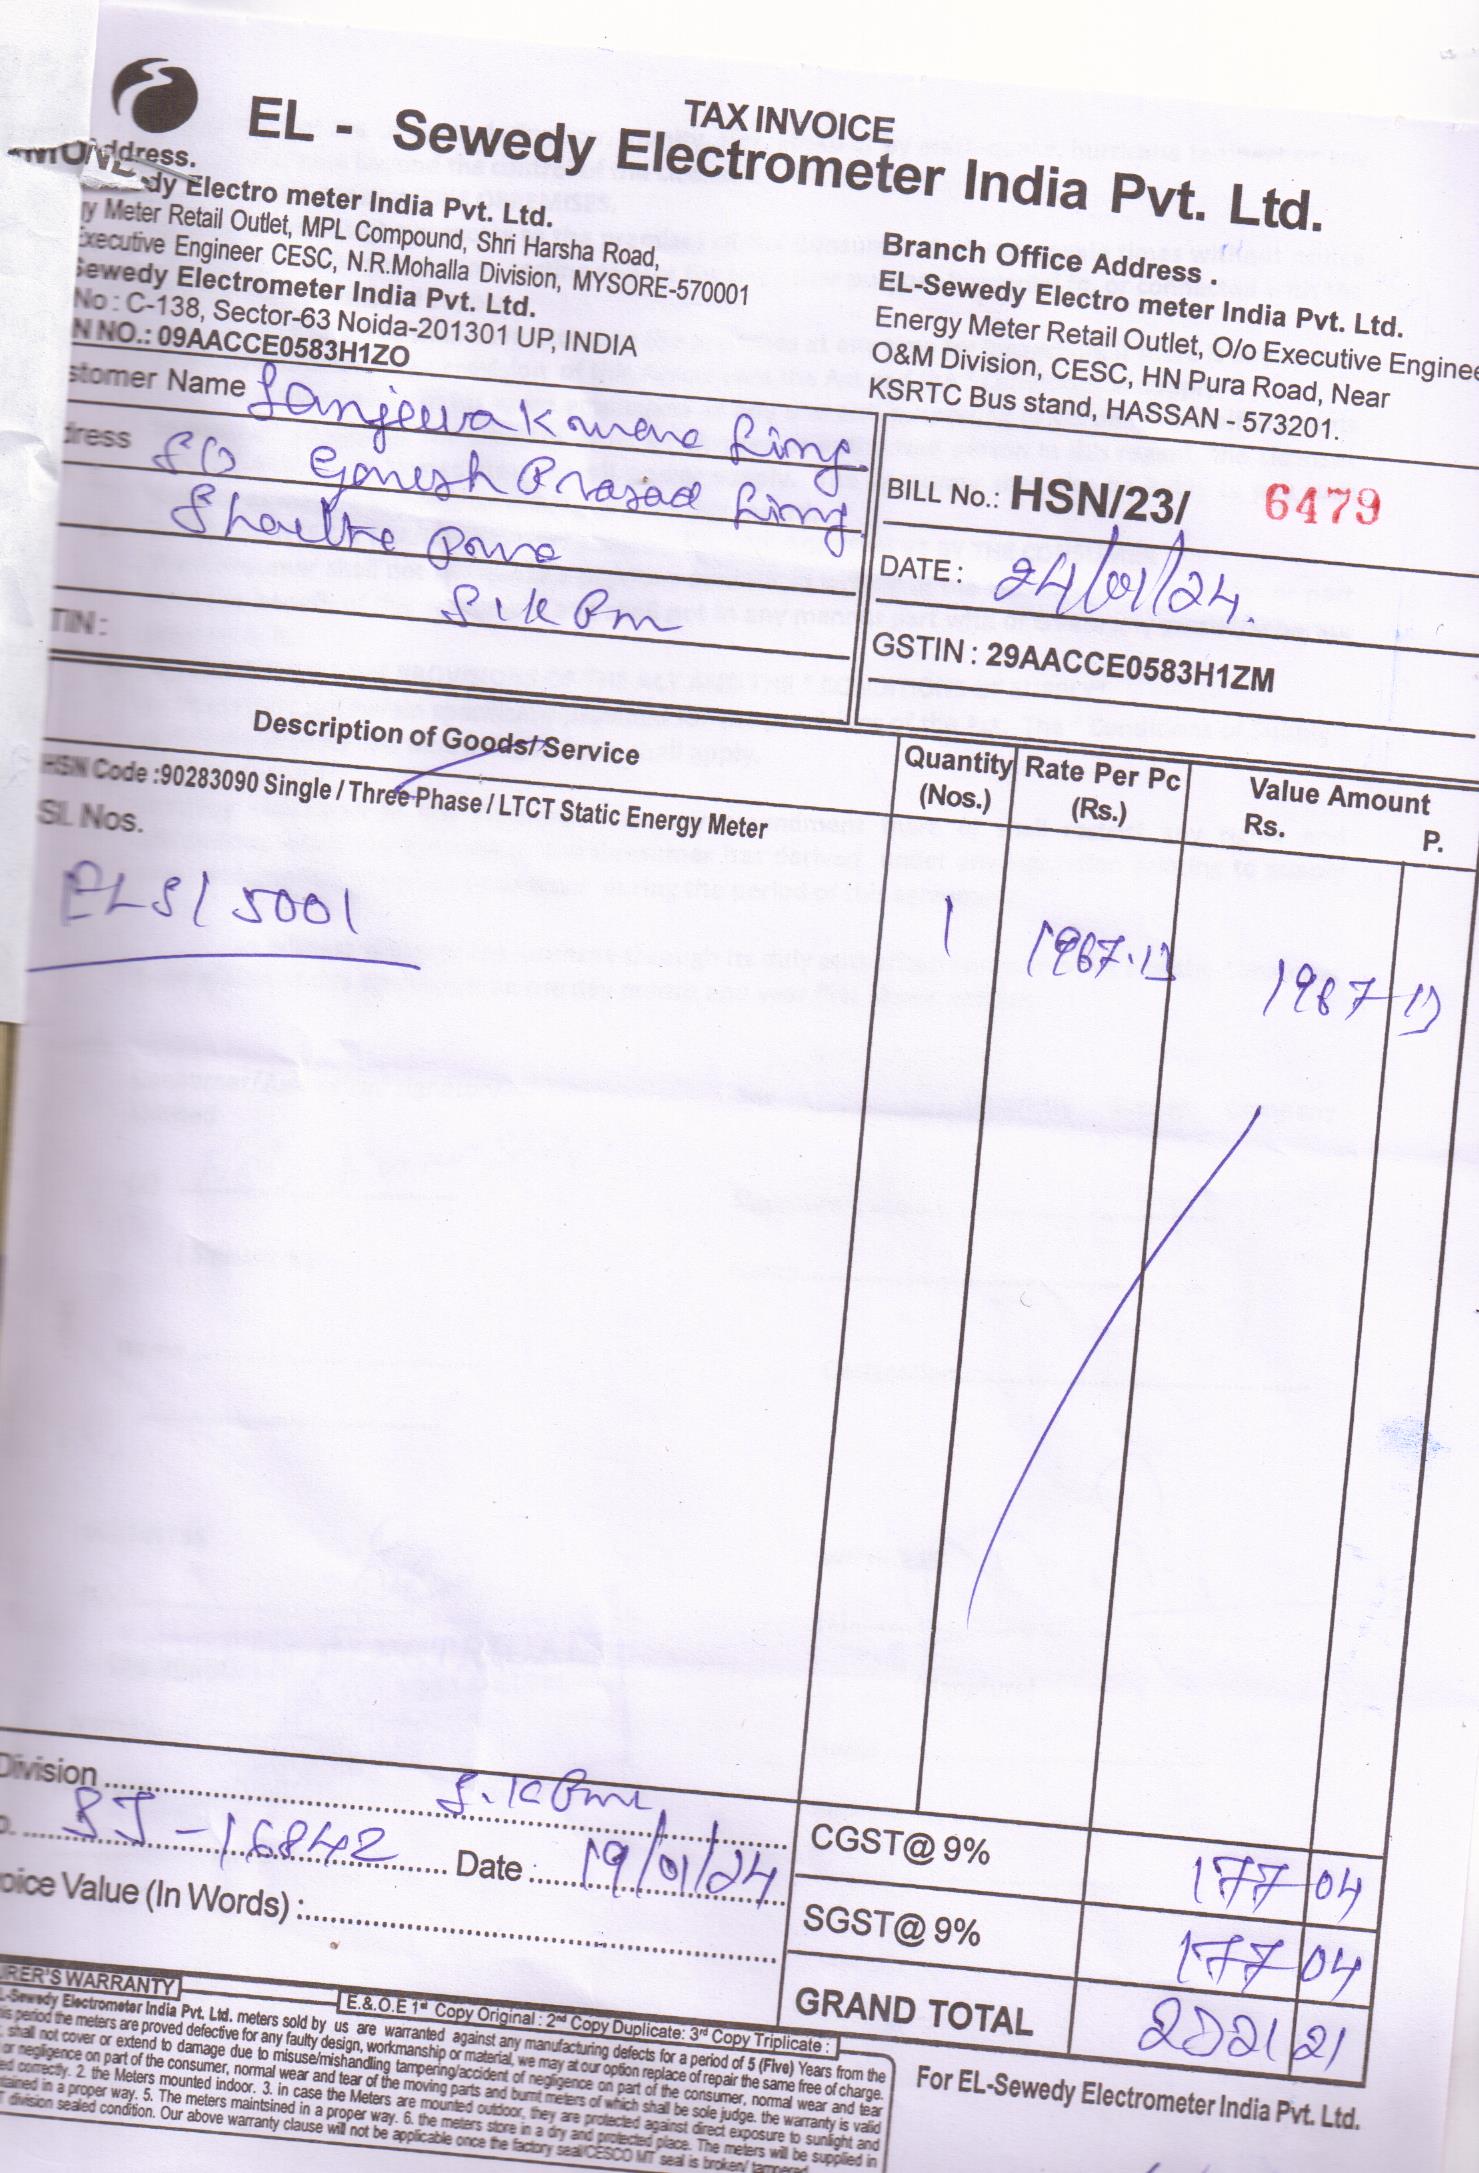 TAX INVOICE
EL - Sewedy Electrometer India Pvt. Ltd.
Address.
dy Electro meter India Pvt. Ltd.
y Meter Retail Outlet, MPL Compound, Shri Harsha Road,
Executive Engineer CESC, N.R.Mohalla Division, MYSORE-570001
Sewedy Electrometer India Pvt. Ltd.
No : C-138, Sector-63 Noida-201301 UP, INDIA
N NO.: 09AACCE0583H1ZO
Branch Office Address
EL-Sewedy Electro meter India Pvt. Ltd.
Energy Meter Retail Outlet, O/o Executive Enginee
O&M Division, CESC, HN Pura Road, Near
KSRTC Bus stand, HASSAN - 573201.
stomer Name Sanjeeva Kumara Sing
dress SO Ganesh Prasad Sing
S.K.Pura
TIN :
BILL No.: HSN/23/ 6479
DATE : 24/01/24.
GSTIN : 29AACCE0583H1ZM
Description of Goods/ Service
Quantity (Nos.) Rate Per Pc (Rs.) Value Amount Rs. P.
HSN Code :90283090 Single / Three Phase / LTCT Static Energy Meter
Sl. Nos.
ELS/5001 1
Division
SJ-16842 Date : 19/01/24
oice Value (In Words) :
CGST@ 9% 177 04
SGST@ 9% 177 04
GRAND TOTAL 21
URER'S WARRANTY
E.&.O.E 1st Copy Original : 2nd Copy Duplicate: 3rd Copy Triplicate :
L-Sewedy Electrometer India Pvt. Ltd. meters sold by us are warranted against any manufacturing defects for a period of 5 (Five) Years from the
his period the meters are proved defective for any faulty design, workmanship or material, we may at our option replace of repair the same free of charge.
shall not cover or extend to damage due to misuse/mishandling tampering/accident of negligence on part of the consumer, normal wear and tear
or negligence on part of the consumer, normal wear and tear of the moving parts and burnt meters of which shall be sole judge. the warranty is valid
ed correctly. 2. the Meters mounted indoor. 3. in case the Meters are mounted outdoor, they are protected against direct exposure to sunlight and
tained in a proper way. 5. The meters maintsined in a proper way. 6. the meters store in a dry and protected place. The meters will be supplied in
T division sealed condition. Our above warranty clause will not be applicable once the factory seal/CESCO MT seal is broken/ tampered
For EL-Sewedy Electrometer India Pvt. Ltd.